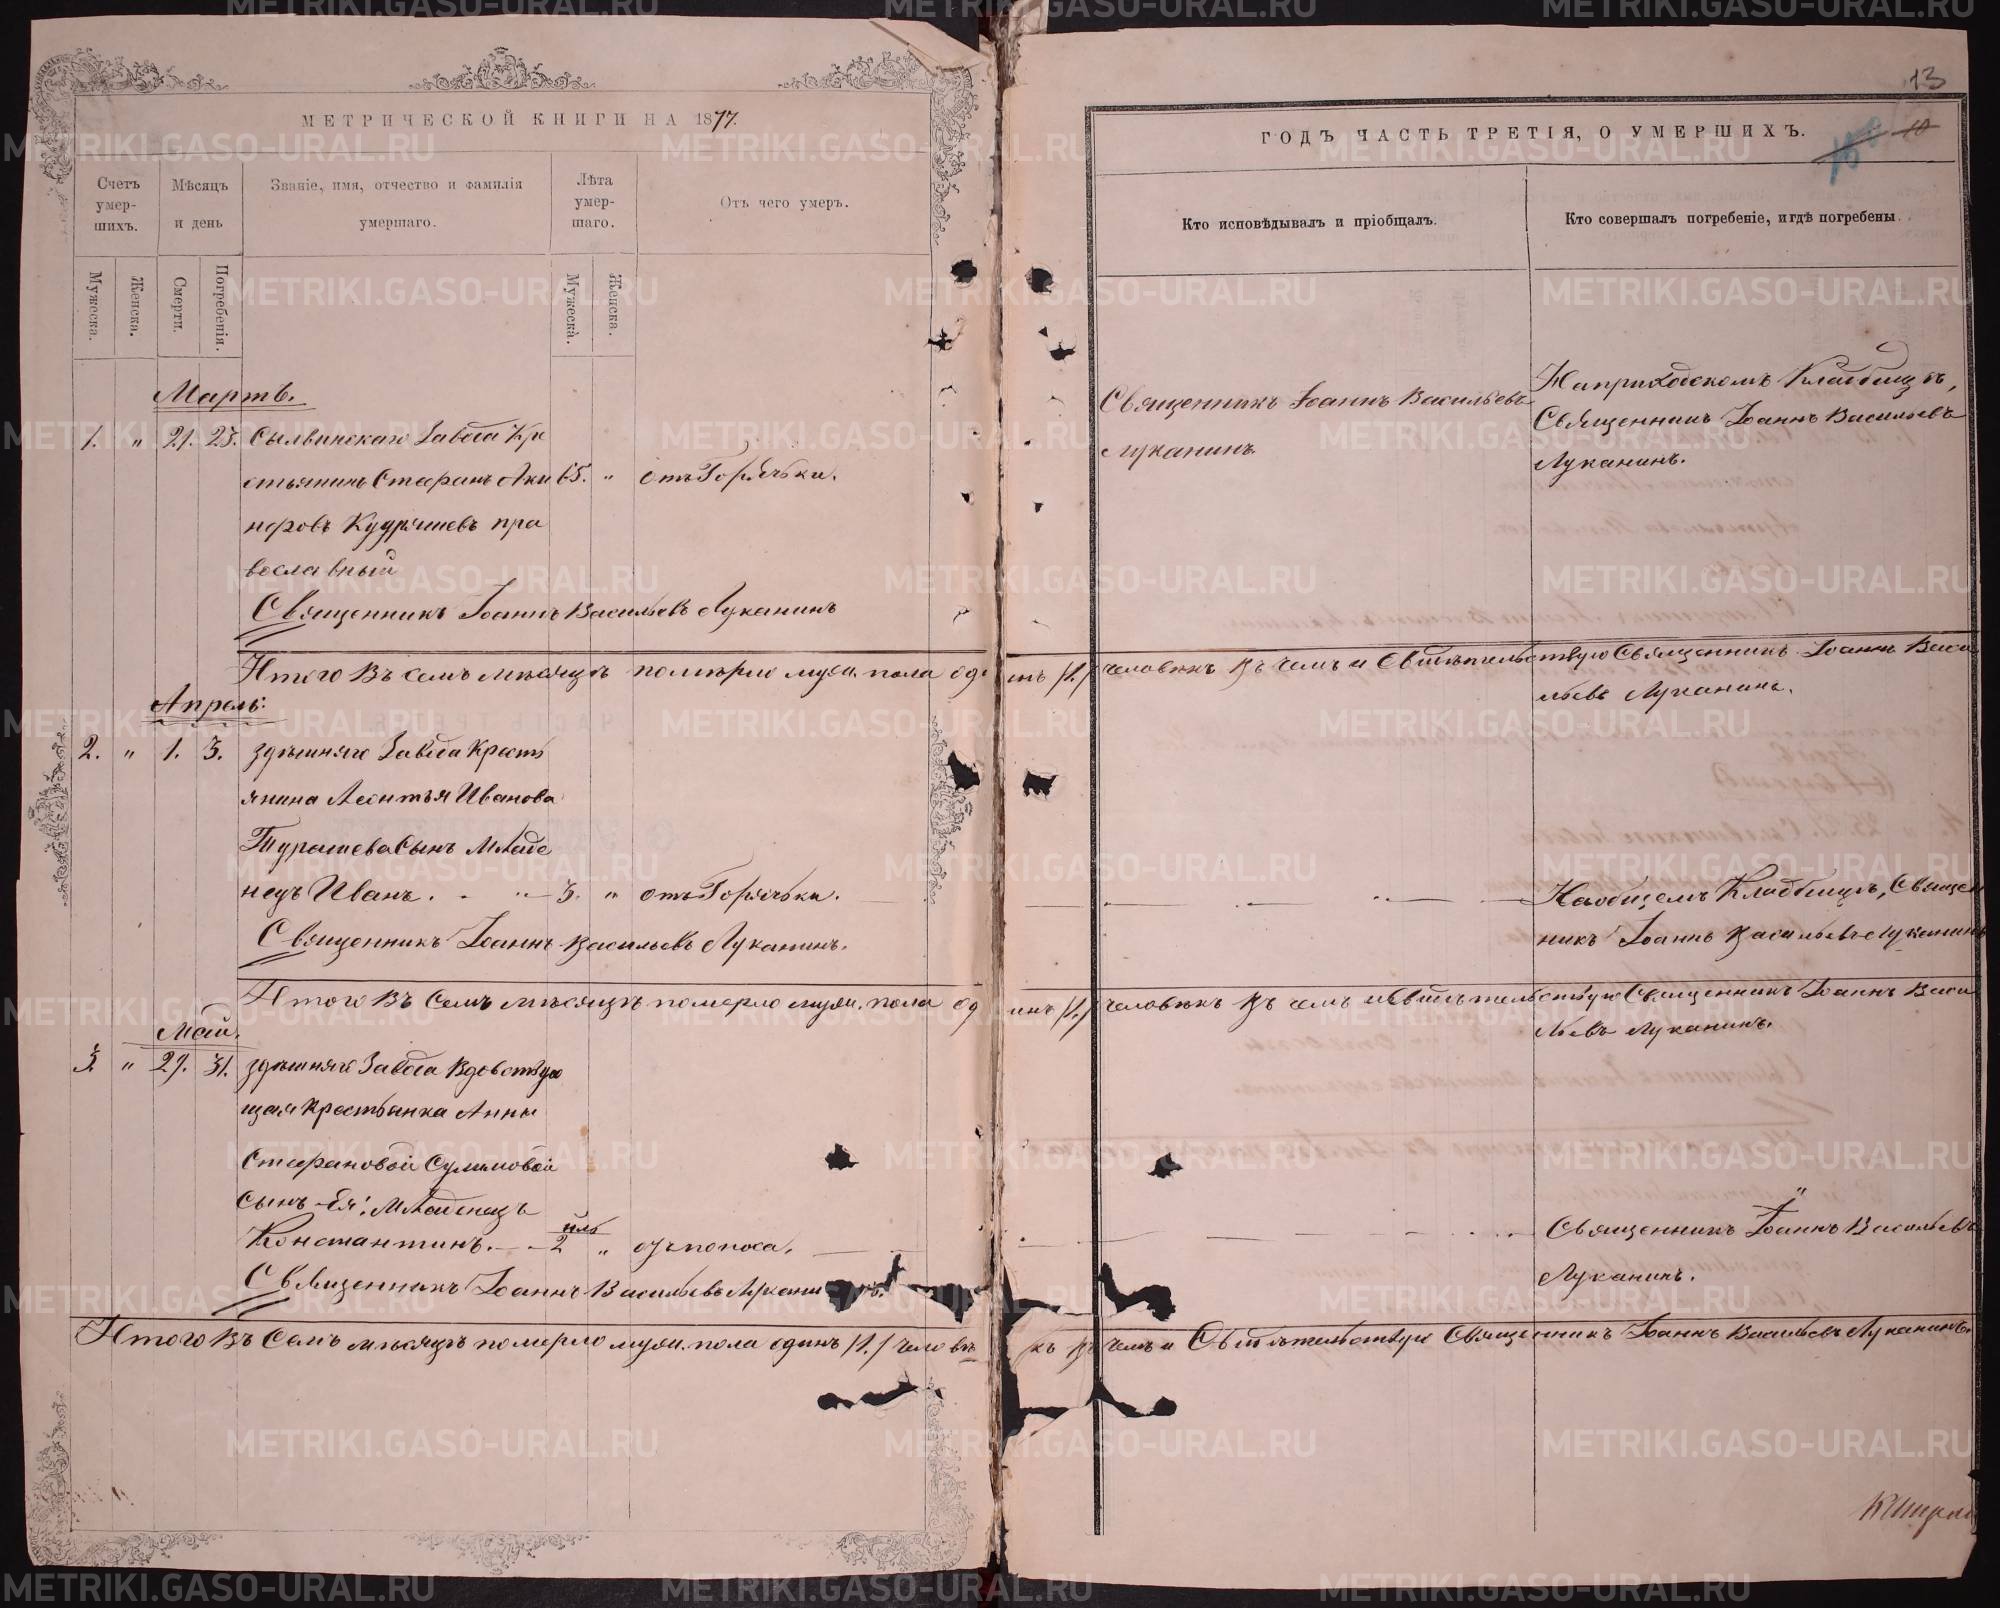 МЕТРИЧЕСКОЙ КНИГИ НА 1877.
Счетъ умер-шихъ.
Мѣсяцъ и день
Званіе, имя, отчество и фамилія умершаго.
Лѣта умер-шаго.
Отъ чего умеръ.
Мужеска.
Женска.
Смерти.
Погребенія.
Мужеска.
Женска.
Мартъ.
1. " 21. 23. Сылвинскаго Завода Кре
стьянинъ Стефанъ Аки 65. " отъ Горячки.
нфовъ Кудряшевъ пра
вославный
Священникъ Іоаннъ Васильевъ Луканинъ
Итого въ семъ мѣсяцѣ померло муж. пола од
Апрель:
2. " 1. 3. здѣшняго Завода Кресть
янина Леонтья Иванова
Турашева Сынъ Младе
нецъ Иванъ. 3. " отъ Горячки.
Священникъ Іоаннъ Васильевъ Луканинъ.
Итого въ семъ мѣсяцѣ померло муж. пола од
Май.
3. " 29. 31. здѣшняго Завода Вдовствую
щая Крестьянка Анны
Стефановой Сулимовой
сынъ Ея: Младенецъ
Константинъ. 2 " отъ поноса.
Священникъ Іоаннъ Васильевъ Лукани
Итого въ семъ мѣсяцѣ померло муж. пола одинъ /1./ человѣ
13
10
ГОДЪ ЧАСТЬ ТРЕТІЯ, О УМЕРШИХЪ.
Кто исповѣдывалъ и пріобщалъ.
Кто совершалъ погребеніе, и гдѣ погребены.
Священникъ Іоаннъ Васильевъ
Луканинъ.
На приходскомъ Кладбищѣ,
Священникъ Іоаннъ Васильевъ
Луканинъ.
инъ /1./ человѣкъ въ чемъ и Свидѣтельствую Священникъ Іоаннъ Васи
льевъ Луканинъ.
На общемъ Кладбищѣ, Священ
никъ Іоаннъ Васильевъ Луканинъ
инъ /1./ человѣкъ въ чемъ и свидѣтельствую Священникъ Іоаннъ Васи
льевъ Луканинъ.
"
Священникъ Іоаннъ Васильевъ
Луканинъ.
къ въ чемъ и Свидѣтельствую Священникъ Іоаннъ Васильевъ Луканинъ.
METRIKI.GASO-URAL.RU